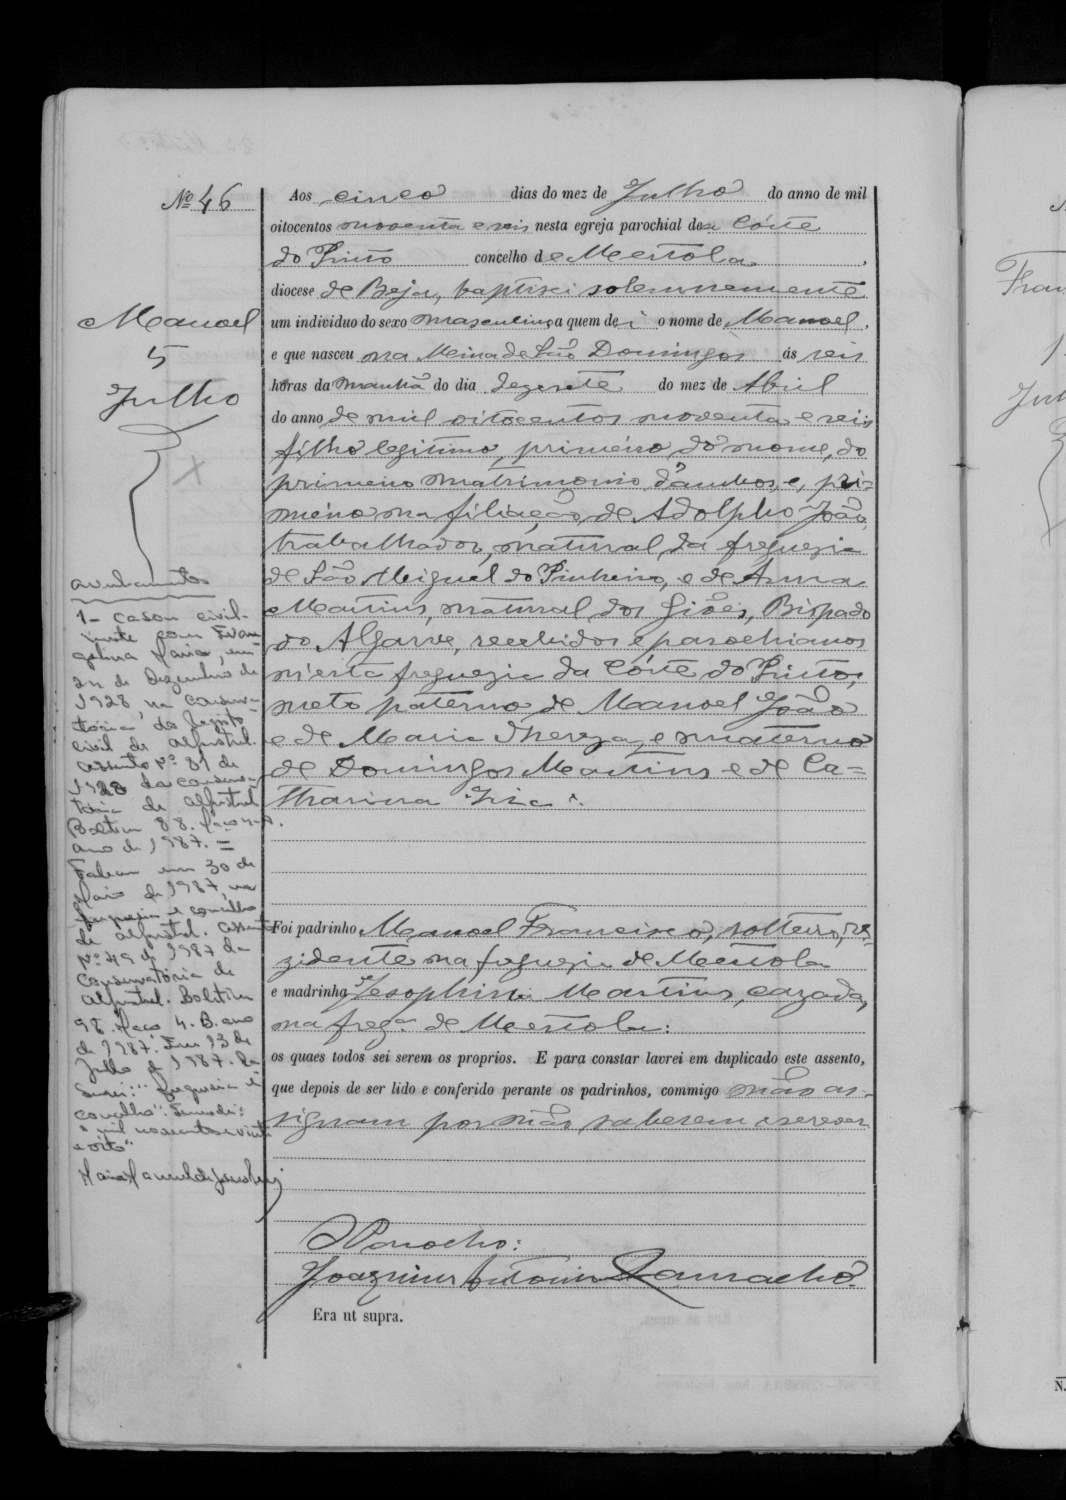 Nº 46
Manoel
5
Julho
Aos cinco dias do mez de Julho do anno de mil
oitocentos noventa e seis nesta egreja parochial da Córte
do Pinto concelho de Mertola,
diocese de Beja, baptisei solemnemente
um individuo do sexo masculino a quem dei o nome de Manoel,
e que nasceu na Mina de São Domingos ás seis
horas da manhã do dia dezesete do mez de Abril
do anno de mil oitocentos noventa e seis
filho legitimo, primeiro do nome, do
primeiro matrimonio d'ambos, e, pri-
meiro na filiação, de Adolpho João,
trabalhador, natural da freguezia
de São Miguel do Pinheiro, e de Anna
Martins, natural dos Giões, Bispado
do Algarve, recebidos e parochianos
n'esta freguezia da Córte do Pinto,
neto paterno de Manoel João
e de Maria Thereza, e materno
de Domingos Martins e de Ca=
tharina
Foi padrinho Manoel Francisco, solteiro, re-
zidente na freguezia de Mertola
e madrinha Jesophina Martins, cazada,
na freg.ª de Mertola:
os quaes todos sei serem os proprios. E para constar lavrei em duplicado este assento,
que depois de ser lido e conferido perante os padrinhos, commigo não as-
signam por não saberem escrever
O Parocho:
Joaquim Antonio Ramacho
Era ut supra.
averbamentos
1- Casou civil-
mente com Evan-
gelina Maria, em
de Dezembro de
1928, na Conserva-
tória do Registo
Civil de Aljustrel.
Assento nº 81 de
1928 da Conserva-
tória de Aljustrel
Boletim 88. Maço
ano de 1987. =
Faleceu em 30 de
Maio de 1987, na
freguesia e concelho
de Aljustrel. Assento
nº 49 de 1987 da
Conservatória de
Aljustrel. Boletim
98. Maço 4. B. ano
de 1987. Em 13 de
Julho de 1987.
freguesia e
concelho". Emendei:
"mil novecentos e vinte
e oito"